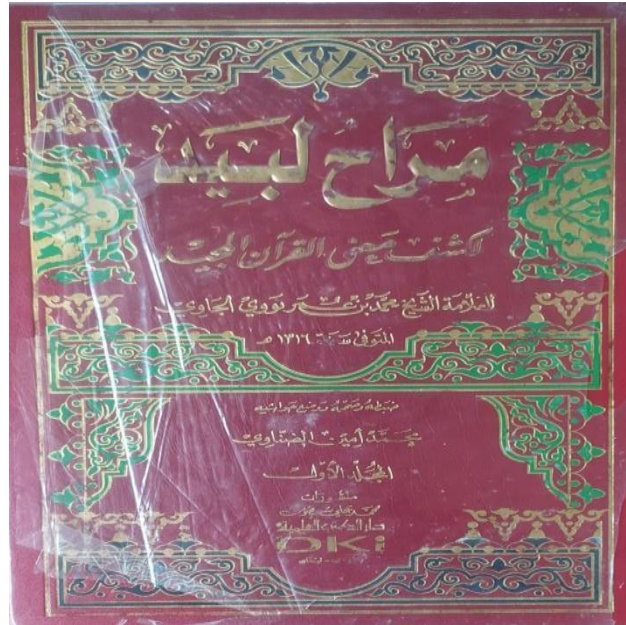 مراح لبيد
لكشف معنى القرآن المجيد
للعلامة الشيخ محمد بن عمر نووي الجاوي
المتوفى سنة ١٣١٦ هـ
ضبطه وصححه ووضع حواشيه
محمد أمين الضناوي
المجلد الأول
منشورات
محمد علي بيضون
دار الكتب العلمية
DKi
لبنان